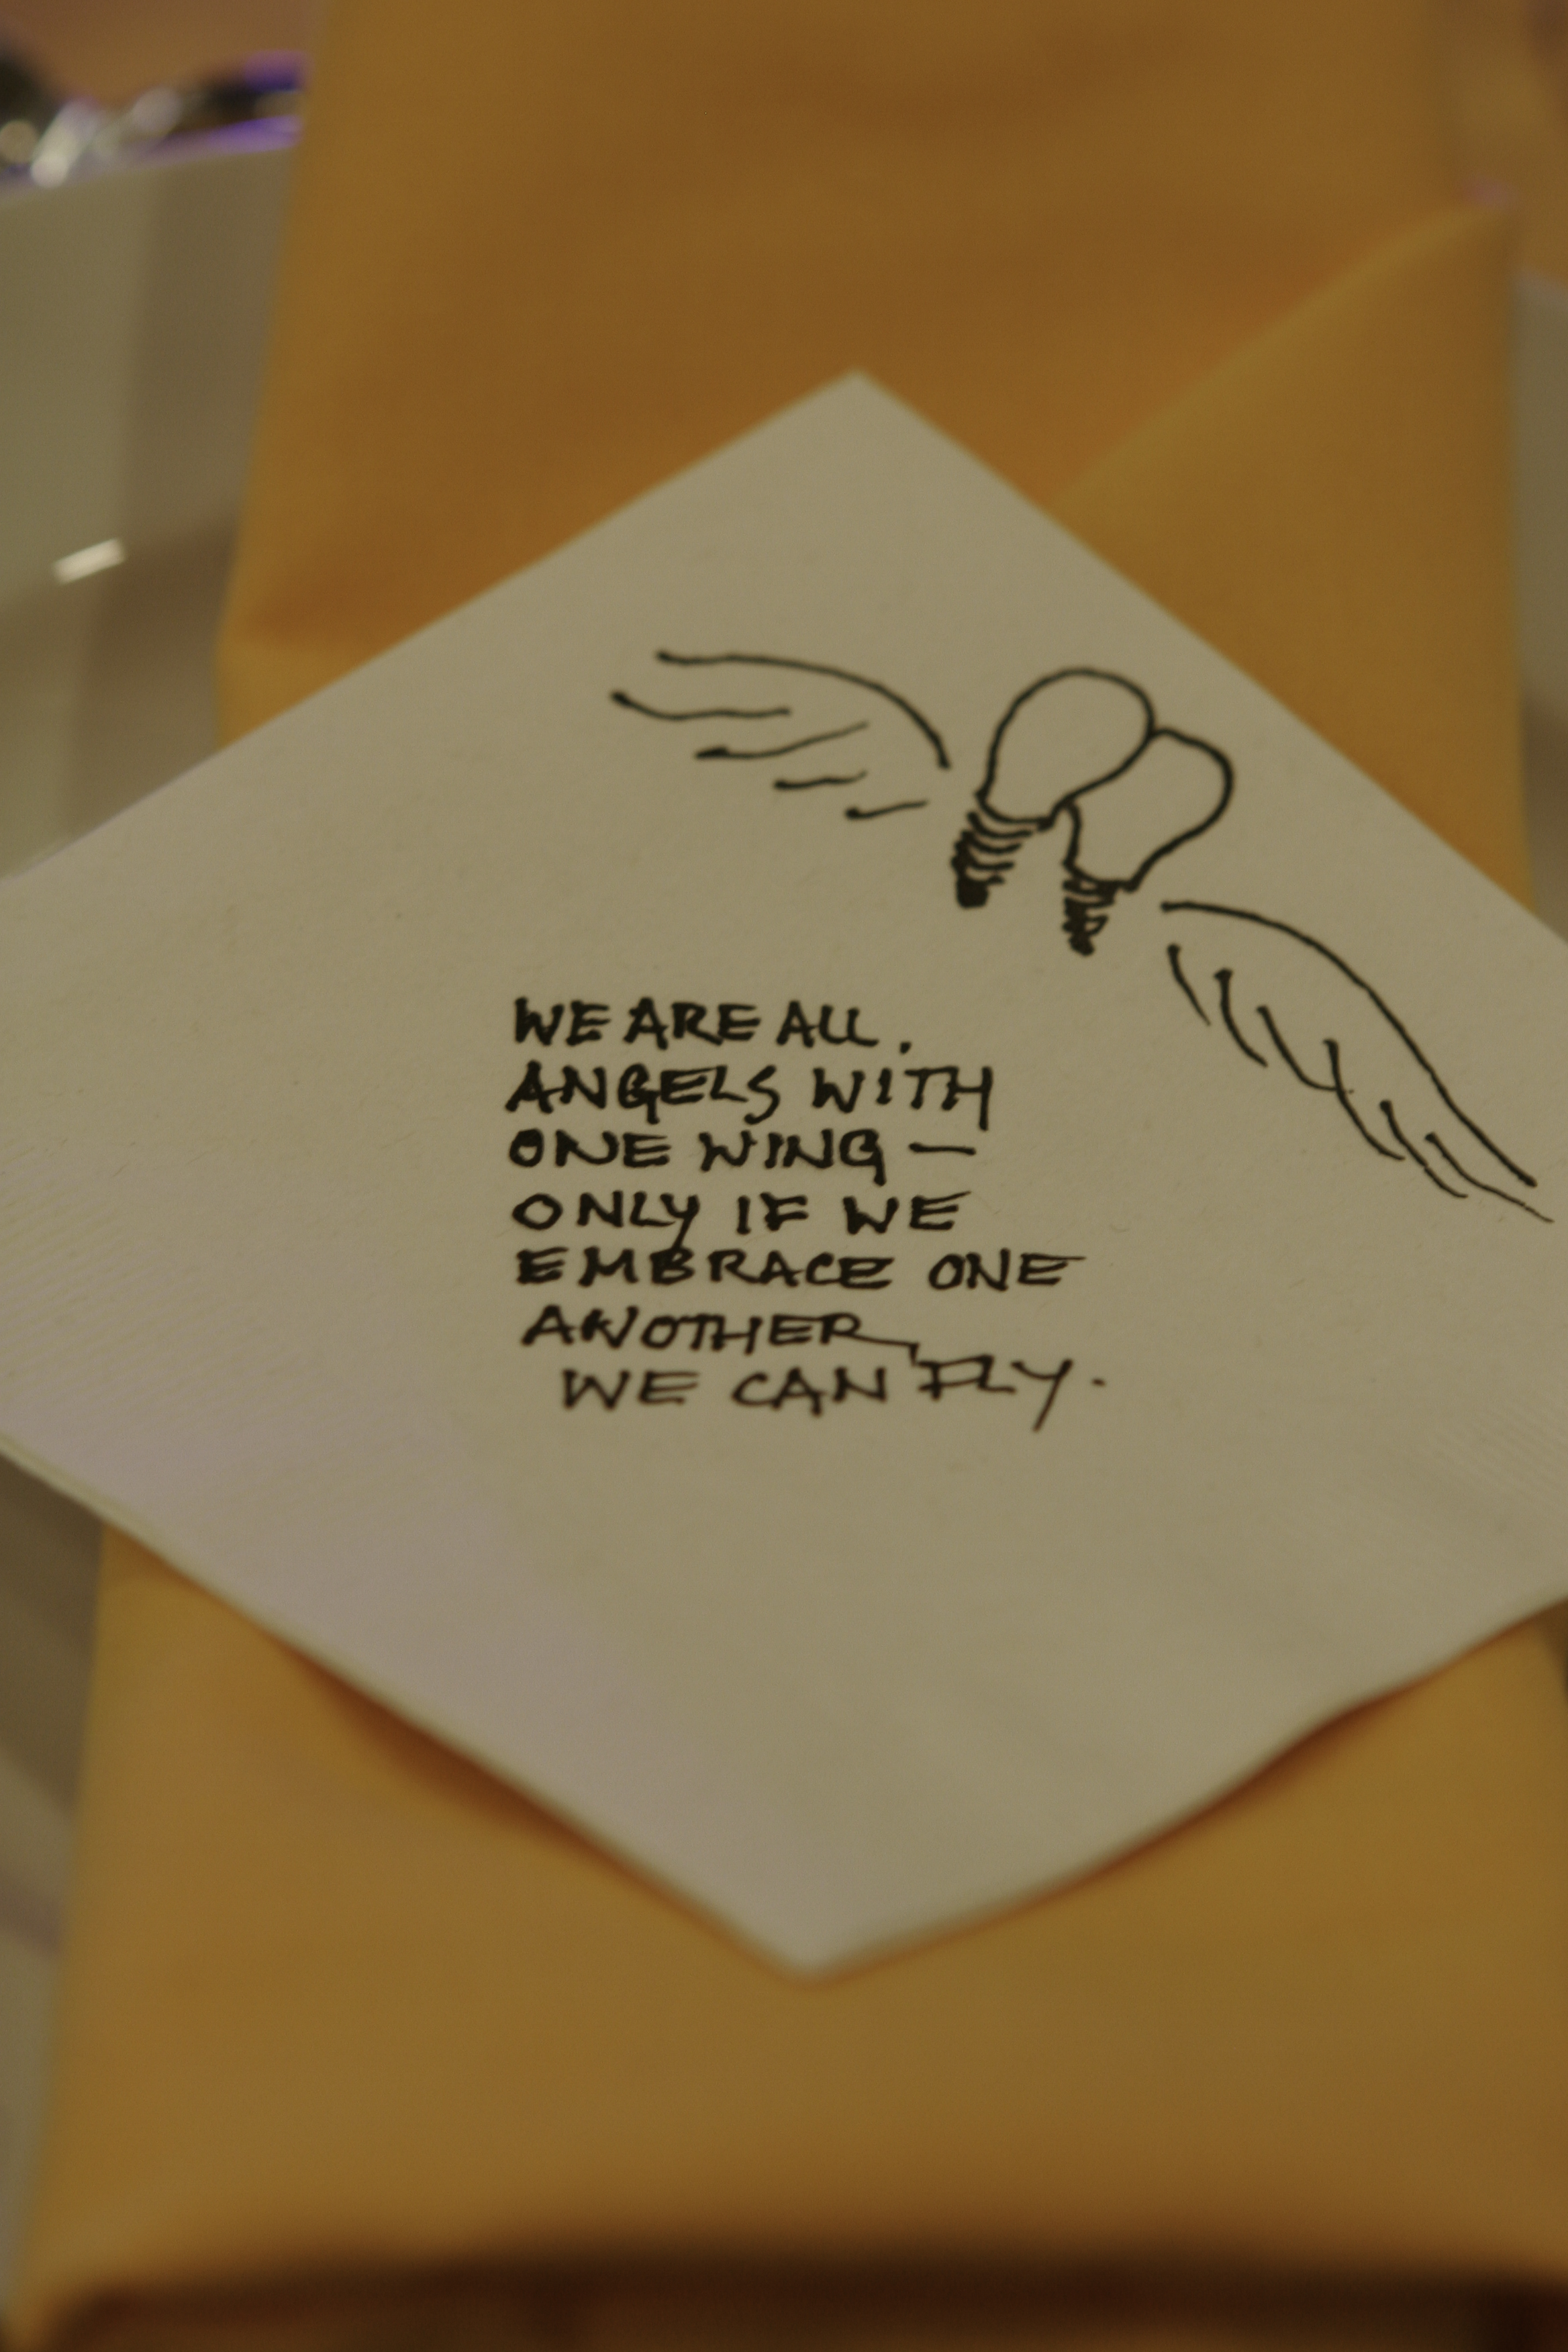 WE ARE ALL.
ANGELS WITH
ONE WING —
ONLY IF WE
EMBRACE ONE
ANOTHER
WE CAN FLY.